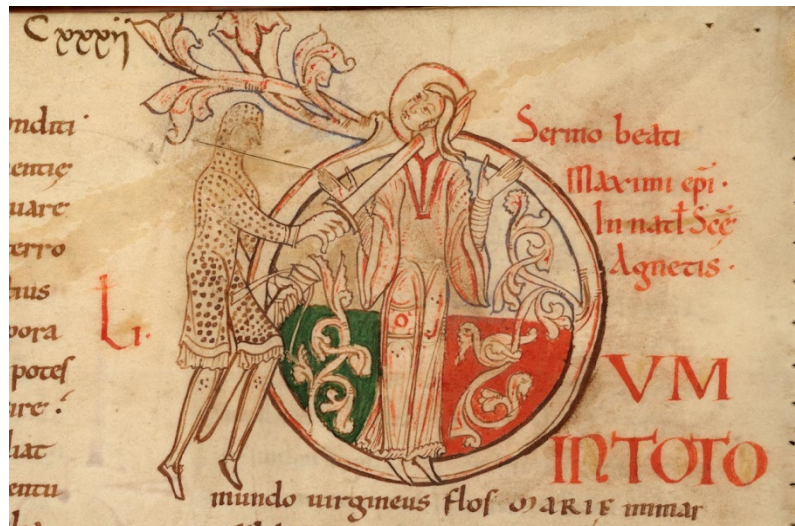 Cxxxij
nditi
entie
uare
erro
tius
pora
potes
ire
liat
entu
Li.
Sermo beati
Maximi epi.
In natł Scę
Agnetis.
VM
IN TOTO
mundo uirgineus flos MARIE